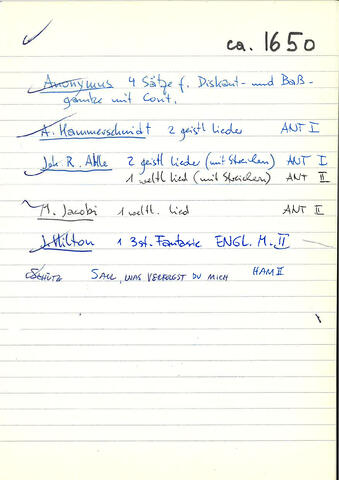 ca. 1650
Anonymus 4 Sätze f. Diskant- und Baß-
gambe mit Cont.
A. Hammerschmidt 2 geistl Lieder ANT I
Joh. R. Ahle 2 geistl. Lieder (mit Streichern) ANT I
1 weltl. Lied (mit Streichern) ANT II
M. Jacobi 1 weltl. Lied ANT II
J. Hilton 1 3st. Fantasie ENGL. M. II
Schütz SAUL, WAS VERFOLGST DU MICH HAM II